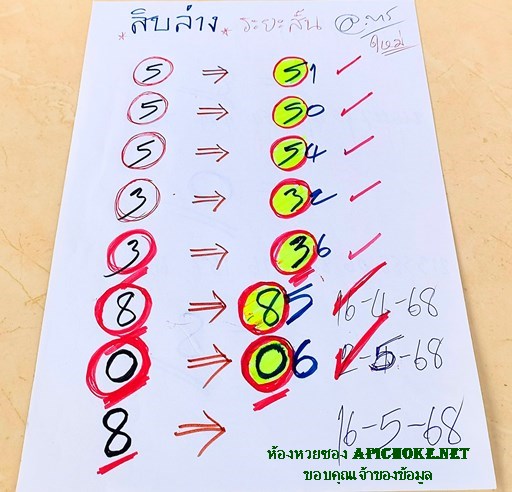 *สิบล่าง* ระยะสั้น
ใหม่
5 ⇒ 51 ✓
5 ⇒ 50 ✓
5 ⇒ 54 ✓
3 ⇒ 32 ✓
3 ⇒ 36 ✓
8 ⇒ 85 ✓ 16-4-68
0 ⇒ 06 ✓ 2-5-68
8 ⇒ 16-5-68
ห้องหวยซอง APICHOKE.NET
ขอบคุณเจ้าของข้อมูล